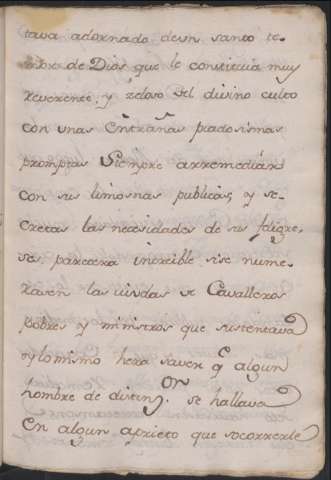 tava adornado de un santo te-
mor de Dios, que le constituia muy
reverente, y zeloso del divino culto
con unas Entrañas piadosimas
promptas Siempre arremediar
con sus limosnas publicas, y se-
cretas las necesidades de sus feligre.
ses pareciera increible si se nume-
rasen las viudas de Cavalleros
pobres y ministros que sustentava
y lo mismo hera saver q^e algun
hombre de distinz^on. se hallava
En algun aprieto que socorrerle